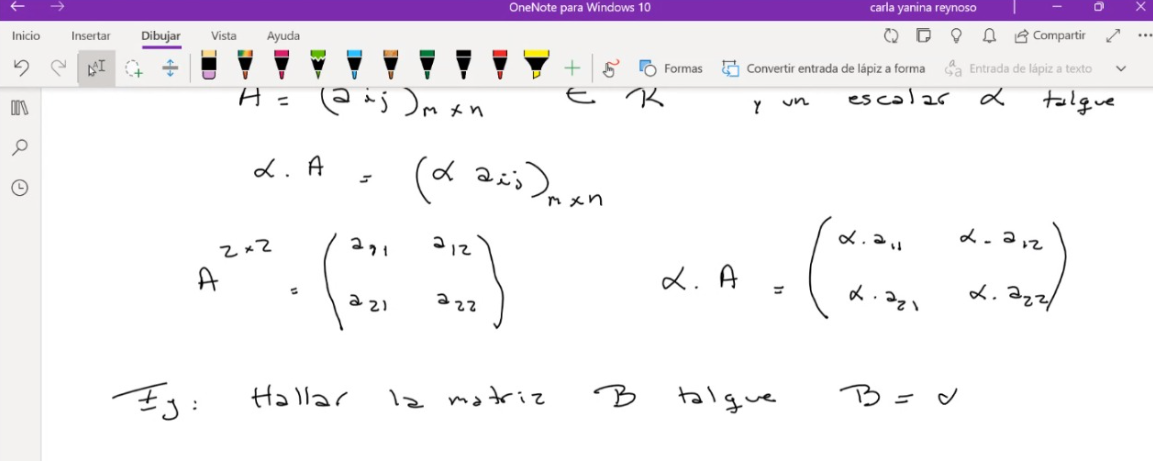 OneNote para Windows 10
carla yanina reynoso
Inicio Insertar Dibujar Vista Ayuda
Compartir
Formas Convertir entrada de lápiz a forma Entrada de lápiz a texto
A = (aij)m×n ∈ K y un escalar α talque
α. A = (α aij)m×n
A 2×2 = (a11 a12 a21 a22) α. A = (α.a11 α.a12 α.a21 α.a22)
Ej: Hallar la matriz B talque B = α